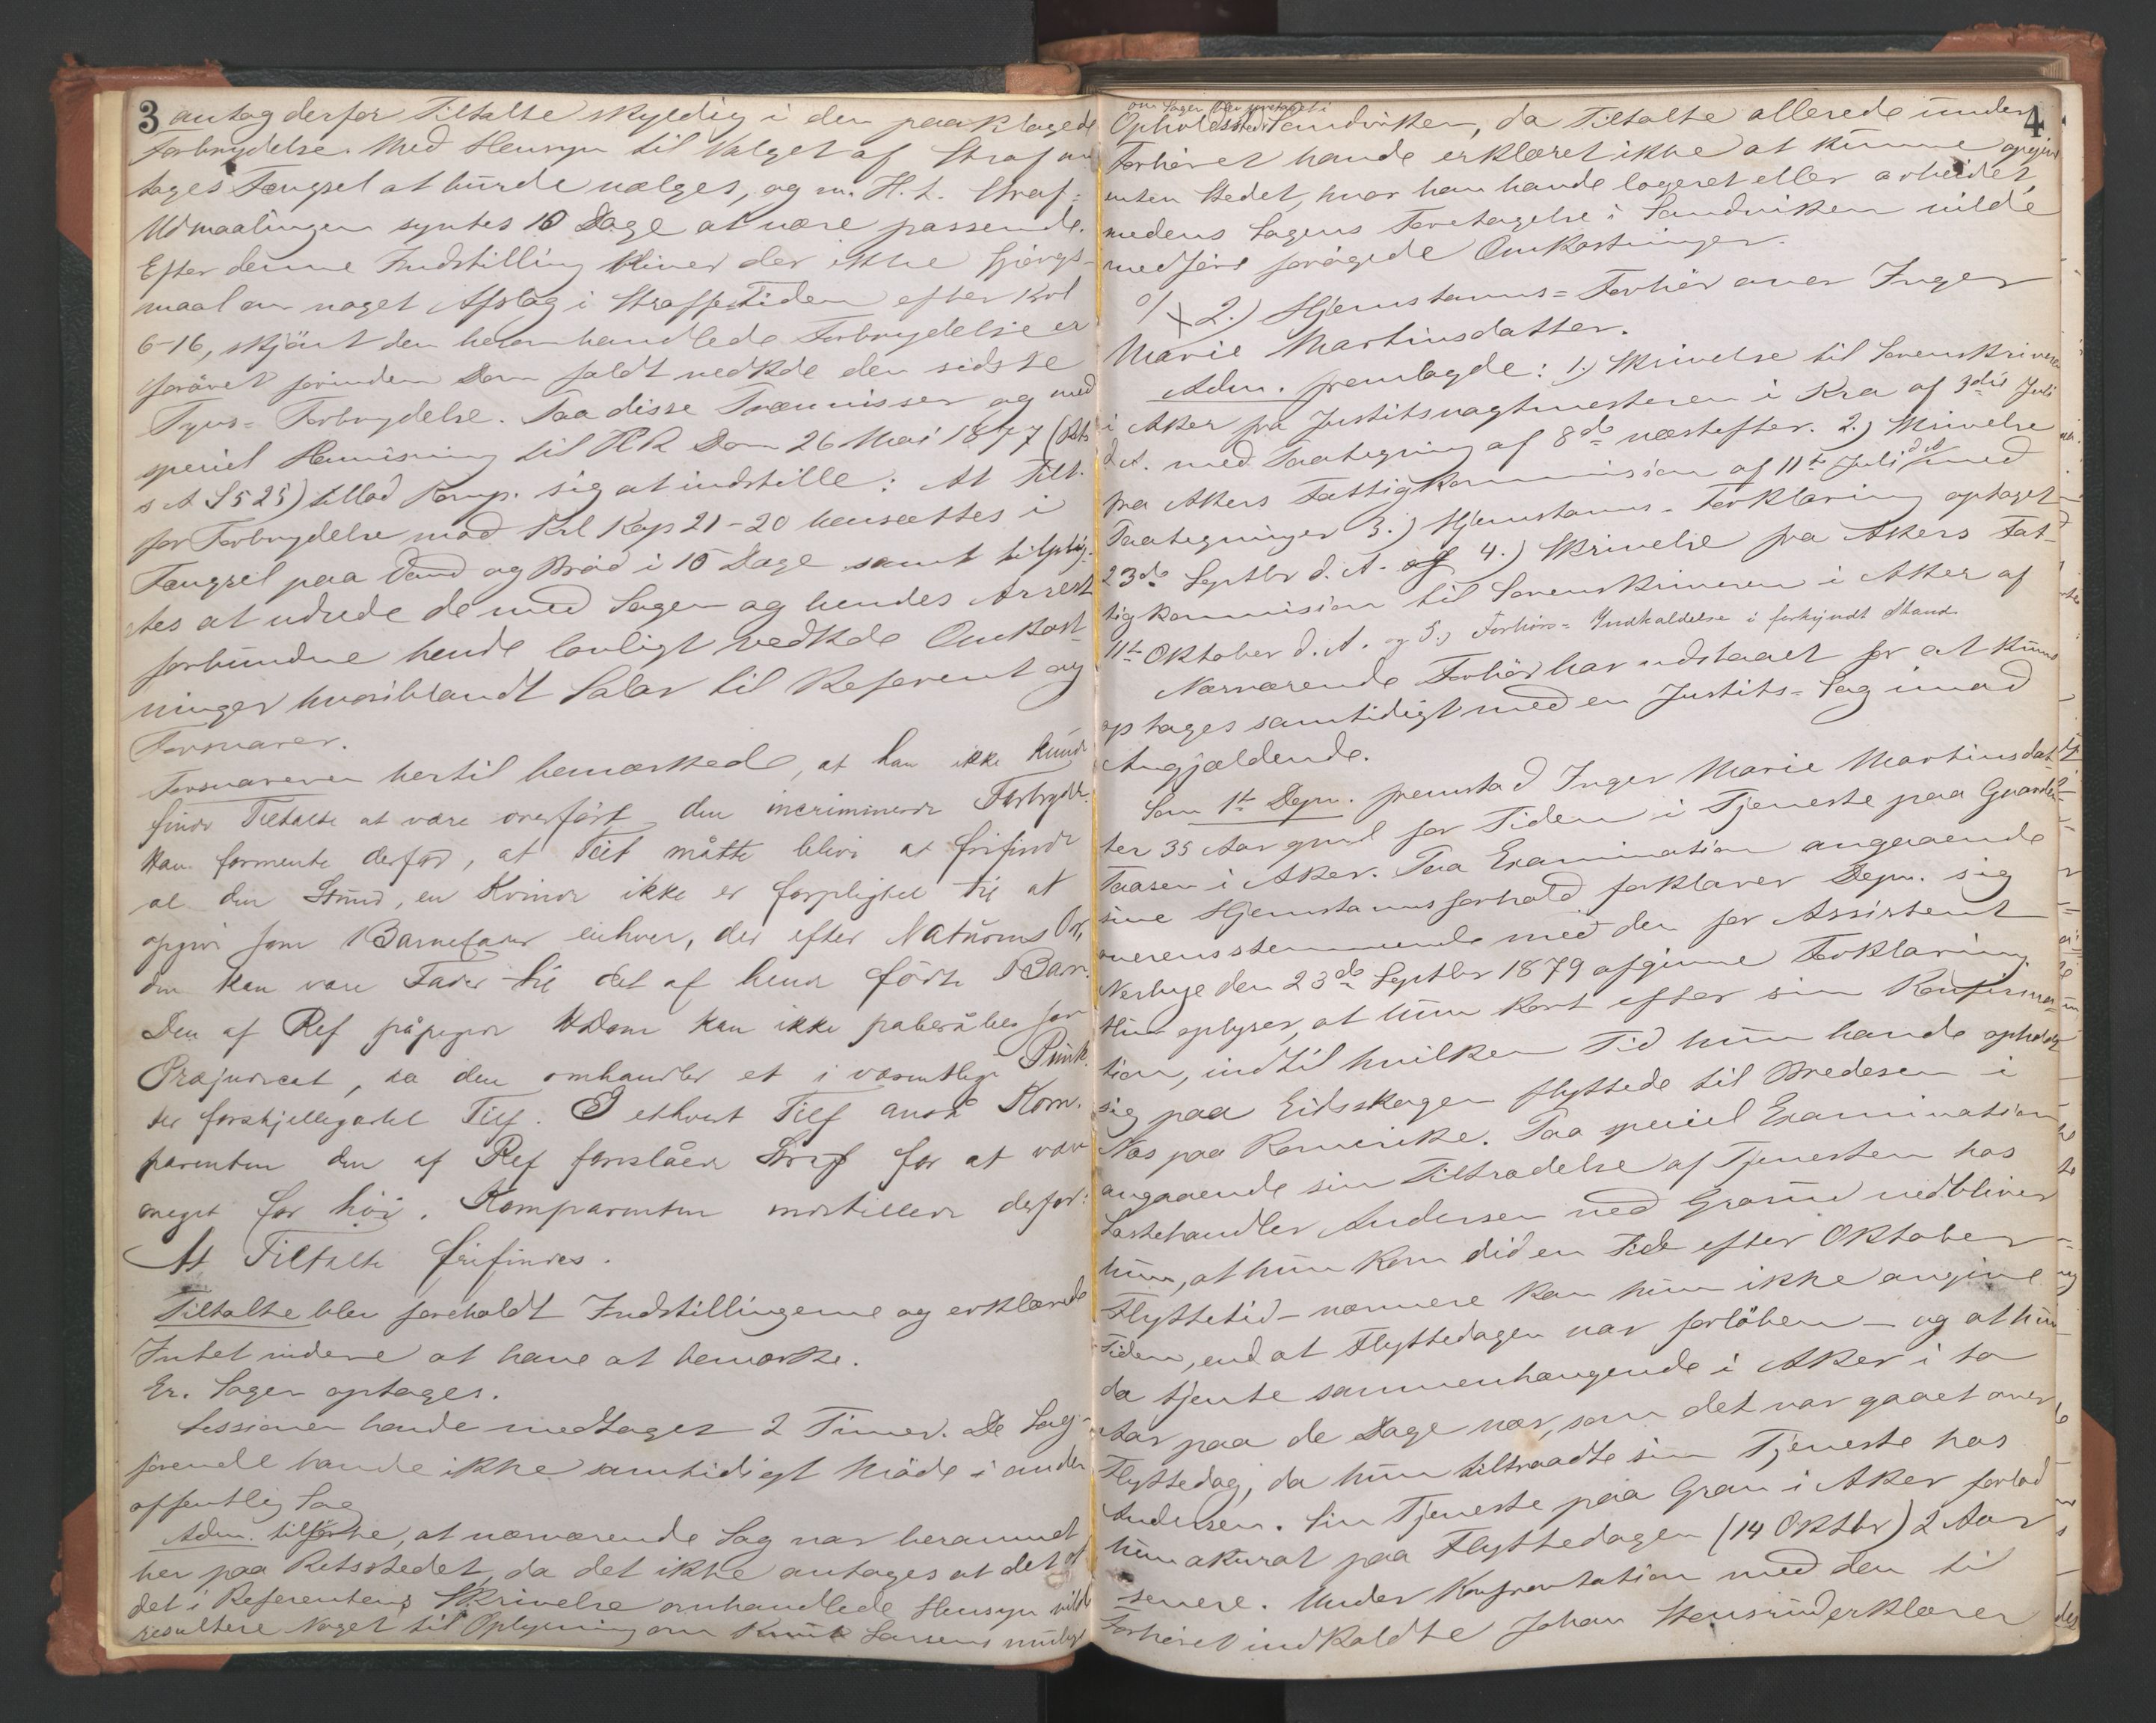 3
antog derfor Tiltalte skyldig i den paaklagede
Forbrydelse. Med Hensyn til Valget af Straf an
toges Fængsel at burde vælges, og m. H. t. Straf-
Udmaalingen syntes 10 Dage at være passende.
Efter denne Indstilling bliver der ikke Spörgs-
maal om noget Afslag i Straffetiden efter Krl
6-16, skjönt den heromhandlede Forbrydelse er
forövet forinden Dom faldt vedkde den sidste
Tyvs-Forbrydelse. Paa disse Præmisser og med
speciel Henvisning til HR Dom 26 Mai 1877 (Rts
s A S 525) tillod Komp. sig at indstille: At Tilt.
for Forbrydelse mod Krl Kap 21-20 hensættes i
Fængsel paa Vand og Bröd i 10 Dage samt tilplig-
tes at udrede de med Sagen og hendes Arrest
forbundne hende lovligt vedkde Omkost-
ninger hvoriblandt Salær til Referent og
Forsvarer.
Forsvareren hertil bemærkede, at han ikke kunde
finde Tiltalte at være overfört den incriminerede Forbrydel.
Han formente derfor, at Tilt måtte blive at frifinde
al den Stund, en Kvinde ikke er forpligtet til at
opgive som Barnefader enhver, der efter Naturens Or-
den kan være Fader til det af hende födte Barn.
Den af Ref påpegede HRDom kan ikke påberåbes som
Præjudicat, da den omhandler et i væsentlige Punk-
ter forskjelligartet Tilf. I ethvert Tilf anså Kom-
parenten den af Ref foreslåede Straf for at være
meget for höi. Komparenten indstillede derfor:
At Tiltalte frifindes.
Tiltalte blev foreholdt Indstillingerne og erklærede
Intet videre at have at bemærke.
Er. Sagen optages.
Sessionen havde medtaget 2 Timer. De Sag-
förende havde ikke samtidigt Möde i anden
offentlig Sag
Adm. tilförte, at nærværende Sag var berammet
her paa Retsstedet, da det ikke antages at det af
det i Referentens Skrivelse omhandlede Hensyn vilde
resultere Noget til Oplysning om Knut Larsens mulige
4
om Sagen blev foretaget i
Opholdssted i Sandviken, da Tiltalte allerede under
Forhöret havde erklæret ikke at kunne opgive
enten Stedet, hvor han havde logeret eller arbeidet,
medens Sagens Foretagelse i Sandviken vilde
medföre forögede Omkostninger.
2.) Hjemstavns-Forhör over Inger
Marie Martinsdatter.
Adm. fremlagde: 1.) Skrivelse til Sorenskriveren
i Aker fra Justitsvagtmesteren i Kra af 3die Juli
d. A. med Paategning af 8de næstefter. 2.) Skrivelse
fra Akers Fattigkommission af 11te Juli d A med
Paategninger 3.) Hjemstavns-Forklaring optaget
23de Septbr d. A. 4.) Skrivelse fra Akers Fat-
tigkommission til Sorenskriveren i Aker af
11te Oktober d. A. og 5.) Forhörs-Indkaldelse i forkyndt Stand.
Nærværende Forhör har udstaaet for at kunne
optages samtidigt med en Justits-Sag imod
Angjældende.
Som 1te Depn. fremstod Inger Marie Martinsdat-
ter 35 Aar gml for Tiden i Tjeneste paa Gaarden
Taasen i Aker. Paa Examination angaaende
sine Hjemstavnsforhold forklarer Depn. sig
overensstemmende med den for Assistent
Nerlyge den 23de Septbr 1879 afgivne Forklaring
Hun oplyser, at hun kort efter sin Konfirma-
tion, indtil hvilken Tid hun havde opholdt
sig paa Eidsskogen flyttede til Bredesen i
Næs paa Romerike. Paa speciel Examination
angaaende sin Tiltrædelse af Tjenesten hos
Lastehandler Andersen ved Grorud vedbliver
hun, at hun kom did en Tid efter Oktober
Flyttetid - nærmere kan hun ikke angive
Tiden, end at Flyttedagen var forlöben - og at hun
da tjente sammenhængende i Aker i to
Aar paa de Dage nær, som det var gaaet over
Flyttedag, da hun tiltraadte sin Tjeneste hos
Andersen. Sin Tjeneste paa Grau i Aker forlod
hun akurat paa Flyttedagen (14 Oktbr) 2 Aar
senere. Under Konfrontation med den til
Forhöret indkaldte Johan Stensrud erklærer